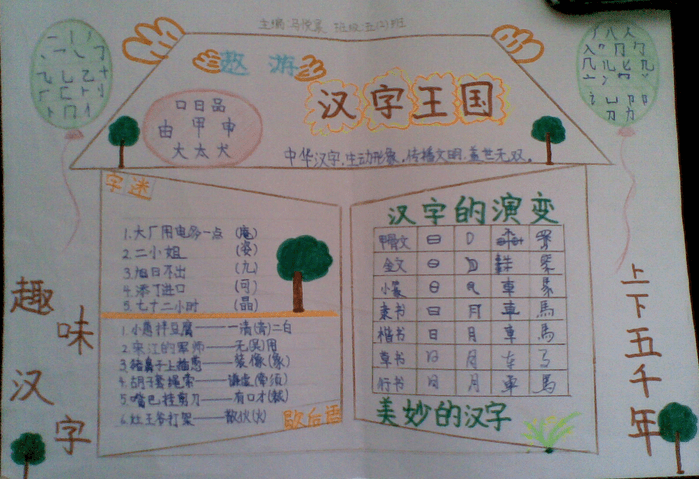 主编:马俊豪、班级:五(2)班
遨游
汉字王国
口日品
由甲申
大太犬
中华汉字,生动形象,传播文明,盖世无双。
字迷
1.大厂用电多一点 (庵)
2.二小姐 (姿)
3.旭日不出 (九)
4.添丁进口 (可)
5.七十二小时 (晶)
1.小葱拌豆腐——一清(青)二白
2.宋江的军师——无(吴)用
3.猪鼻子上插葱——装像(象)
4.胡子套绳索——谦虚(牵须)
5.嘴巴挂剪刀——有口才(裁)
6.灶王爷打架——散伙(火)
歇后语
汉字的演变
甲骨文
金文
小篆 車
隶书 日 月 車 馬
楷书 日 月 車 馬
草书 日 月
行书 日 月 車 馬
美妙的汉字
趣味汉字
上下五千年